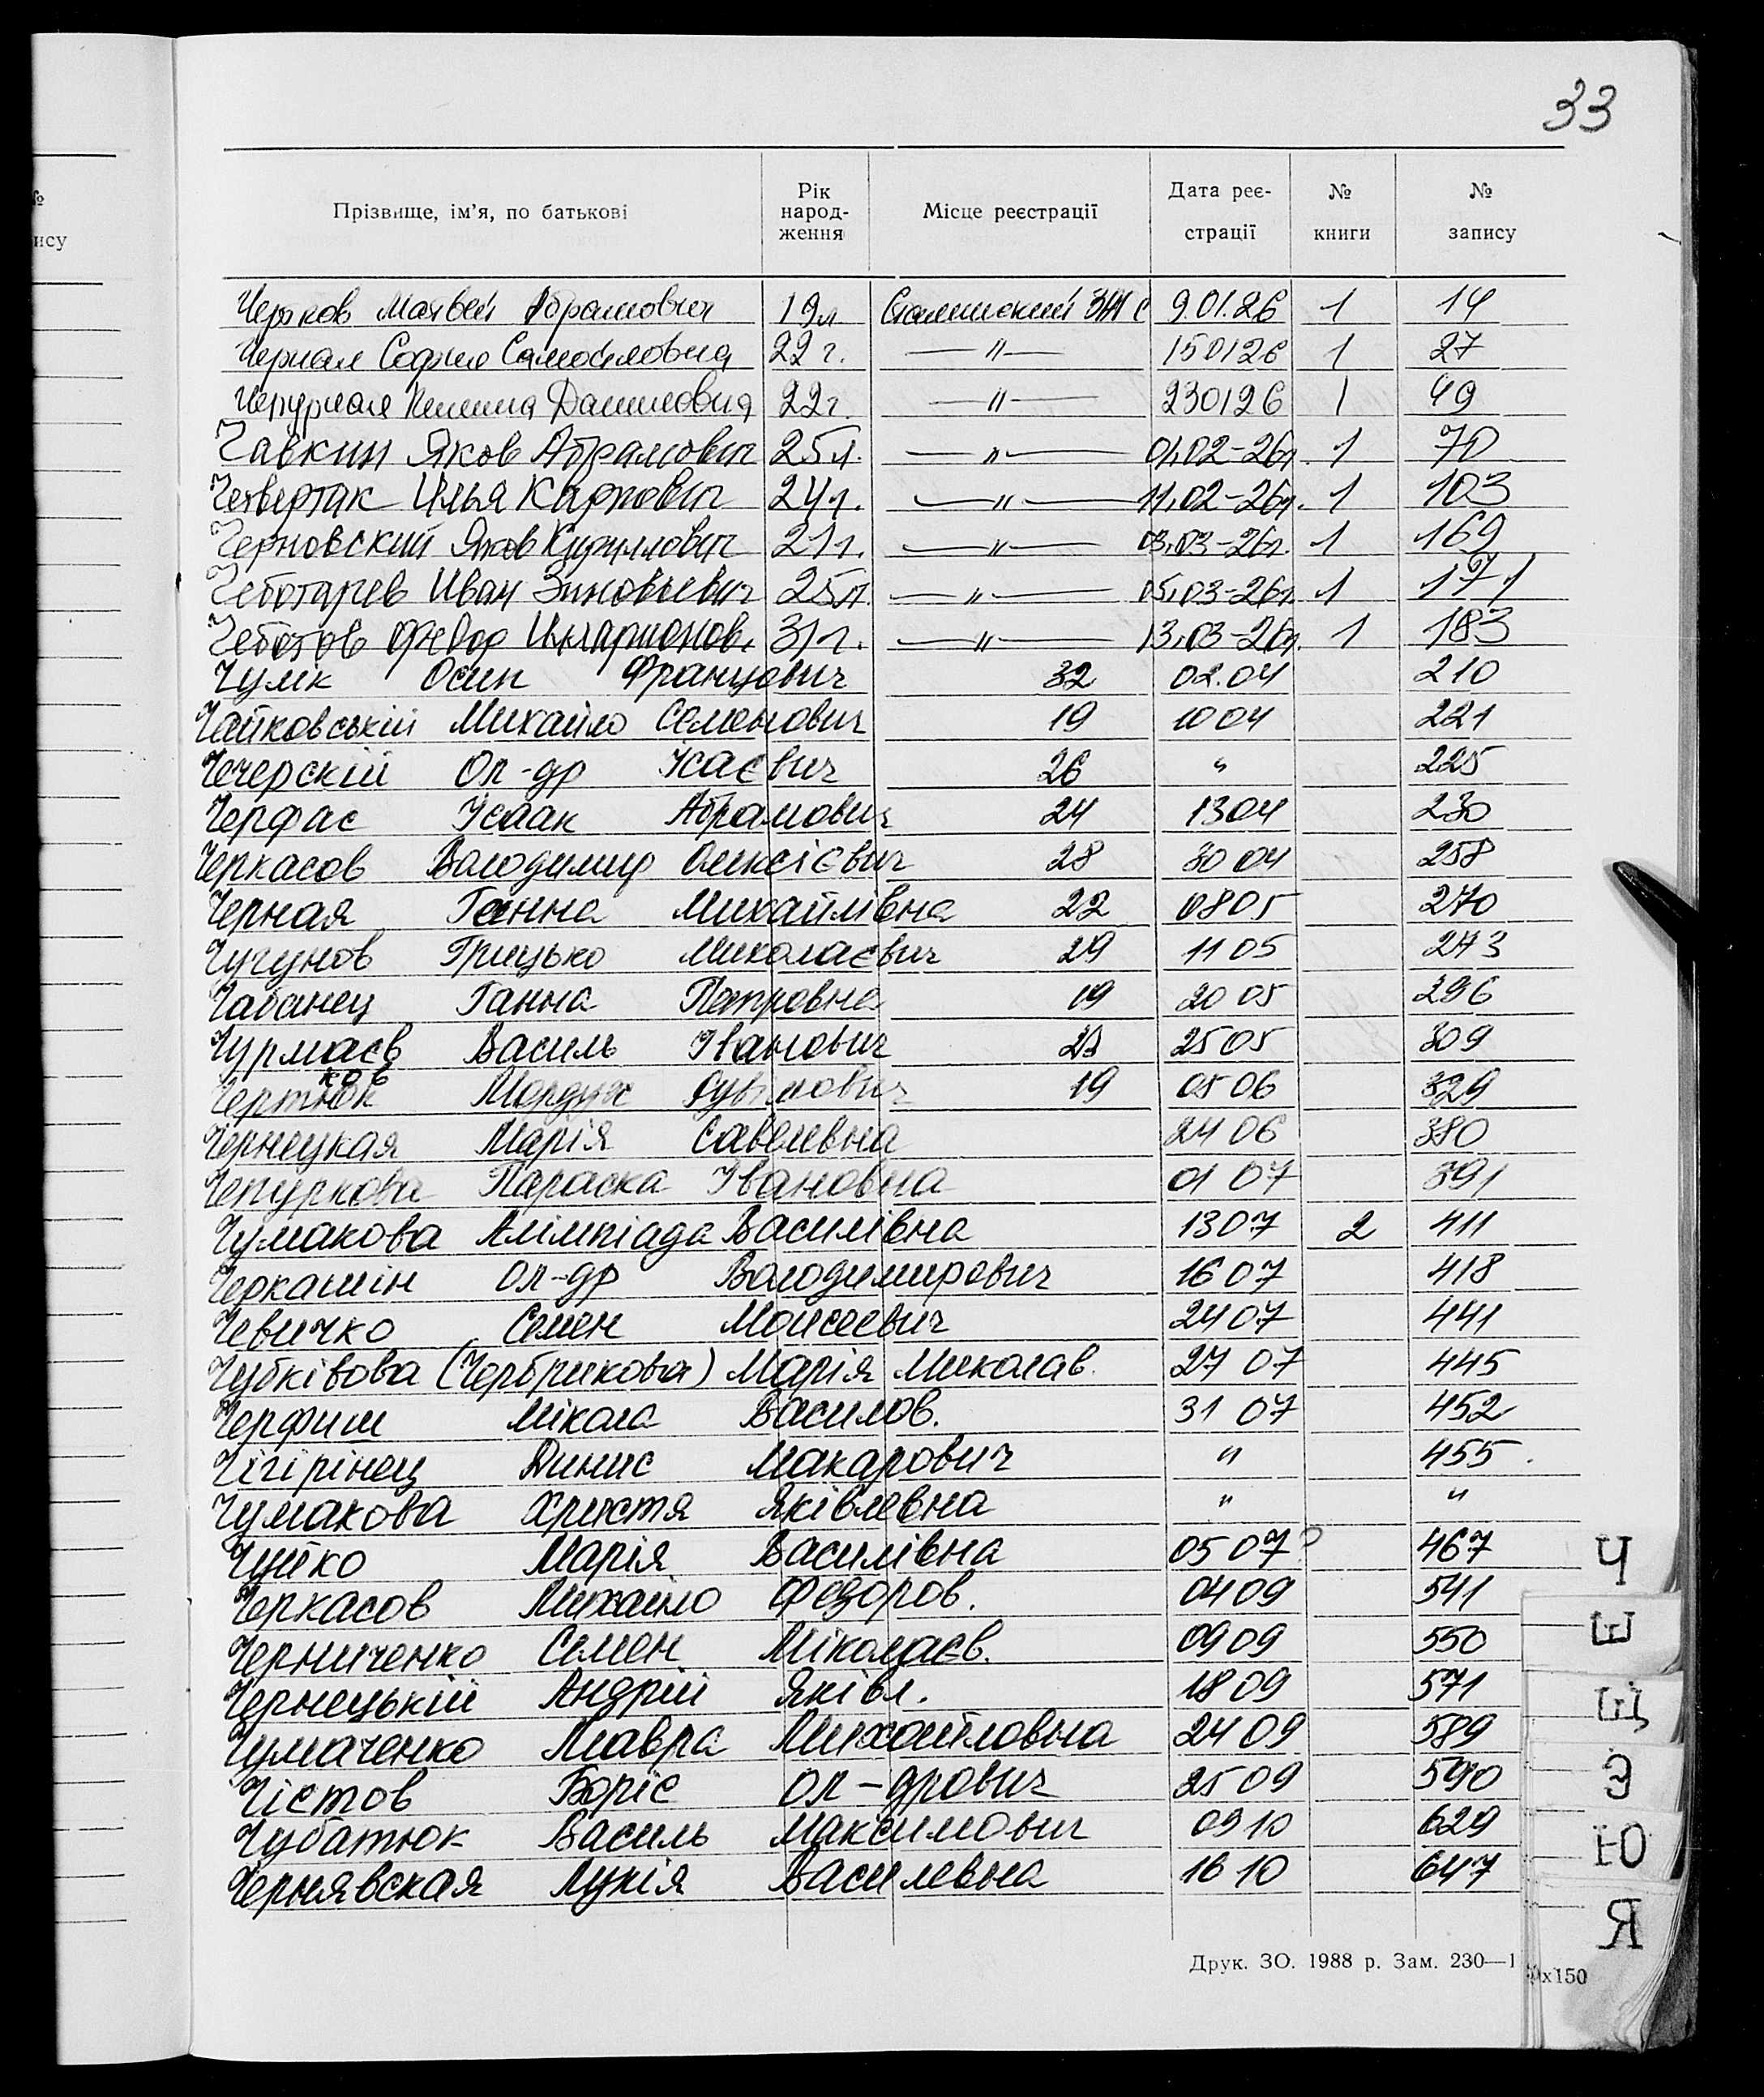 33
№
ису
Прізвище, ім'я, по батькові
Рік народ-ження
Місце реєстрації
Дата реє-страції
№ книги
№ запису
Матвей Абрамович 19л 9.01.26 1 14
Черная София Самойловна 22 г. —"— 150126 1 27
Чепурная Даниловна 22г. —"— 230126 1 49
Чавкин Яков Абрамович 25л. —"— 01.02-26г. 1 70
Четвертак Илья Карпович 24г. —"— 11.02-26г. 1 103
Черновский Яков Кириллович 21г. —"— 03.03-26г. 1 169
Чеботарев Иван Зиновьевич 25л. —"— 05.03-26г. 1 171
Чеботов Федор Илларионов. 31г. —"— 13.03-26г. 1 183
Чулік Осип Францович 32 02.04 210
Чайковській Михайло Семенович 19 10 04 221
Чечерскій Ол-др Ісаєвич 26 " 225
Черфас Ісаак Абрамович 24 13 04 230
Черкасов Володимир Олексієвич 28 30 04 258
Черная Ганна Михайлівна 22 08 05 270
Чугунов Грицько Миколаєвич 29 11 05 273
Чабанец Ганна Петровна 19 20 05 296
Чурмаєв Василь Іванович 23 25 05 309
ков
Чертюк Мордух 19 05 06 329
Чернецкая Марія Савелевна 24 06 380
Чепуркова Параска Івановна 01 07 391
Чумакова Алімпіада Василівна 13 07 2 411
Черкашін Ол-др Володимирович 16 07 418
Чевичко Семен Моисеевич 24 07 441
Чубківова (Чербрикова) Марія Миколав. 27 07 445
Черфиш Мікола Василов. 31 07 452
Чігірінец Динис Макарович " 455
Чумакова Христя Яківлевна " "
Чуйко Марія Василівна 05 07? 467
Черкасов Михайло Федоров. 04 09 541
Черниченко Семен Міколаєв. 09 09 550
Чернецькій Андрій Яківл. 18 09 571
Чумаченко Мавра Михайловна 24 09 589
Чістов Боріс Ол-дрович 25 09 590
Чубатюк Василь Максимович 09 10 629
Чернявская Лукія Василевна 16 10 647
Ч
Ш
Щ
Э
Ю
Я
Друк. ЗО. 1988 р. Зам. 230—1
х150